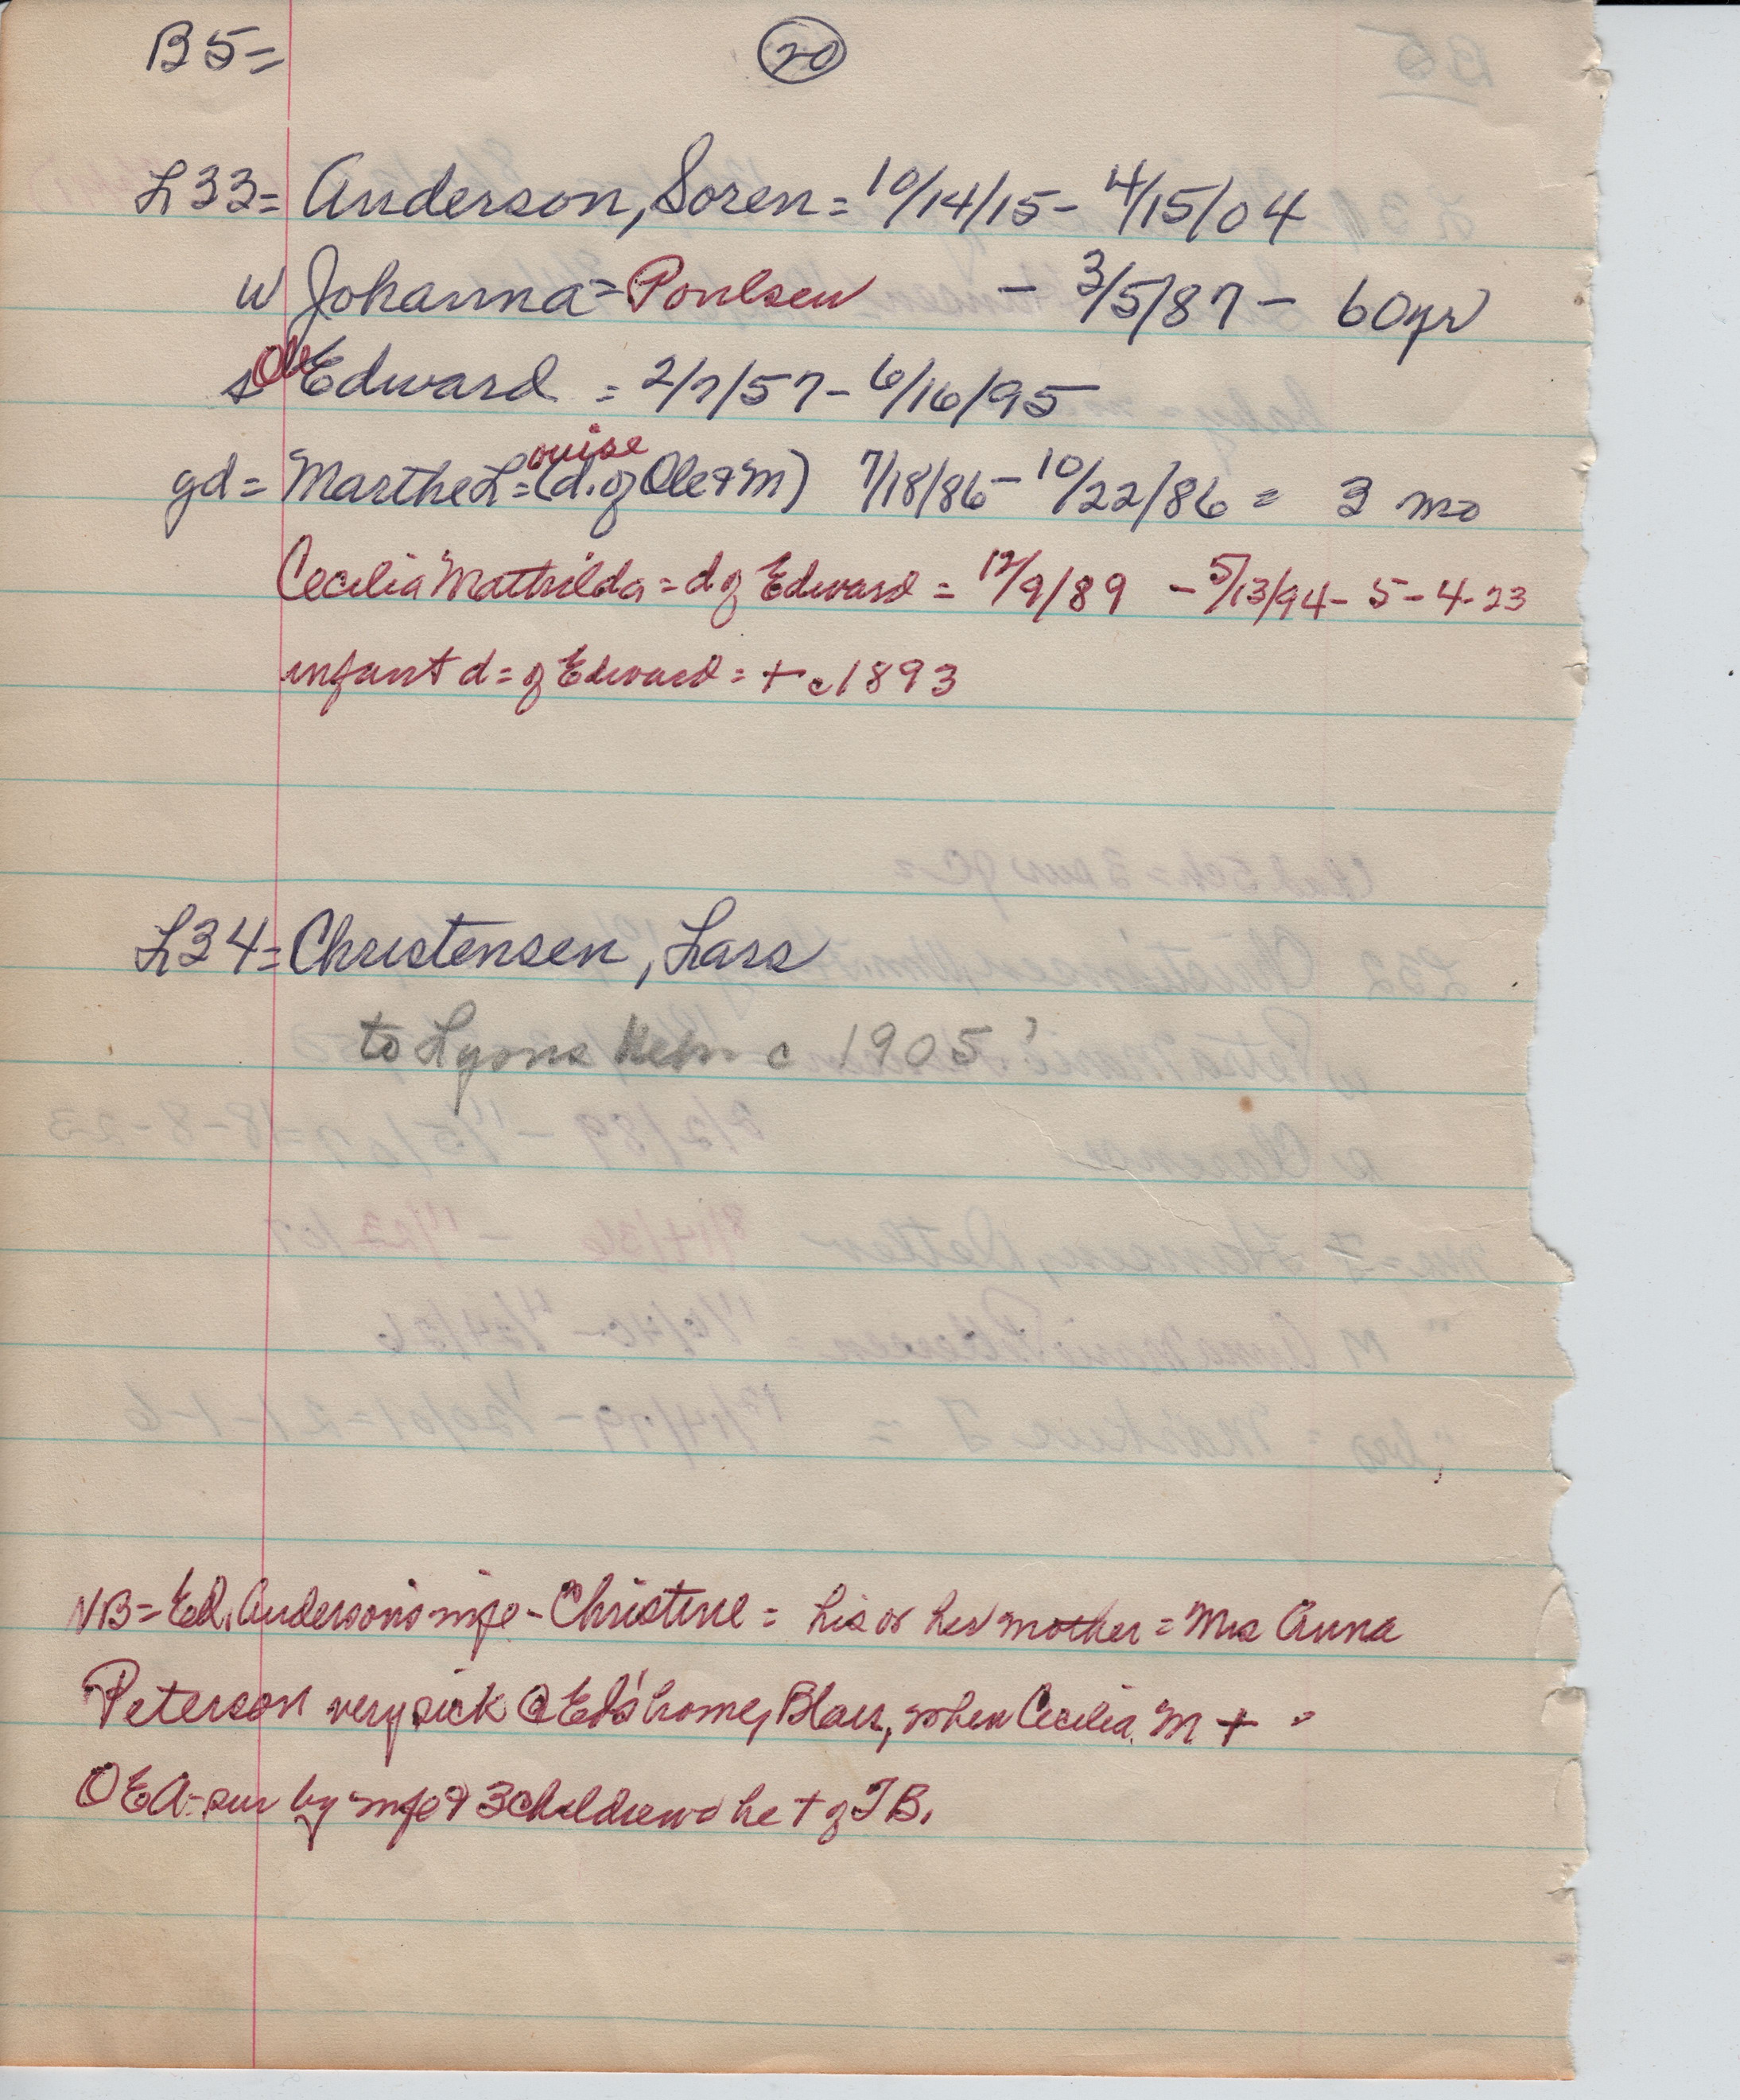 B5=
20
L33= Anderson, Soren = 10/14/15 - 4/15/04
w Johanna = Poulsen - 3/5/87 - 60yr
s Ole Edward = 2/7/57 - 6/16/95
ouise
gd = Marthe L = (d. of Ole & M) 7/18/86 - 10/22/86 = 3 mo
Cecilia Mathilda = d of Edward = 12/9/89 - 5/13/94 - 5-4-23
infant d = of Edward = + c1893
L34= Christensen, Lars
to Lyons Nebr c 1905?
NB = Ed. Anderson's wife - Christine = his or her mother = Mrs Anna
Peterson very sick @ Ed's home, Blair, when Cecilia M + =
OEA = sur by wife & 3 children = he + of TB.